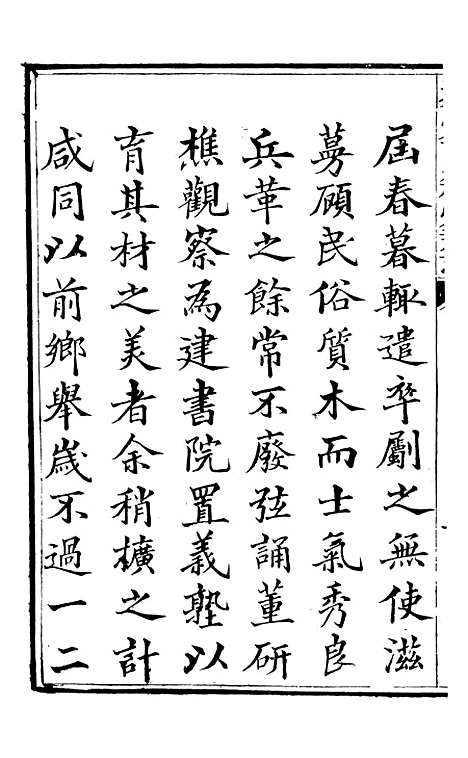 屆春暮輙遣卒劚之無使滋
蔓頋民俗質木而士氣秀良
兵革之餘常不廢弦誦董硏
樵觀察為建書院置義塾以
育其材之美者余稍擴之計
咸同以前鄉舉歲不過一二